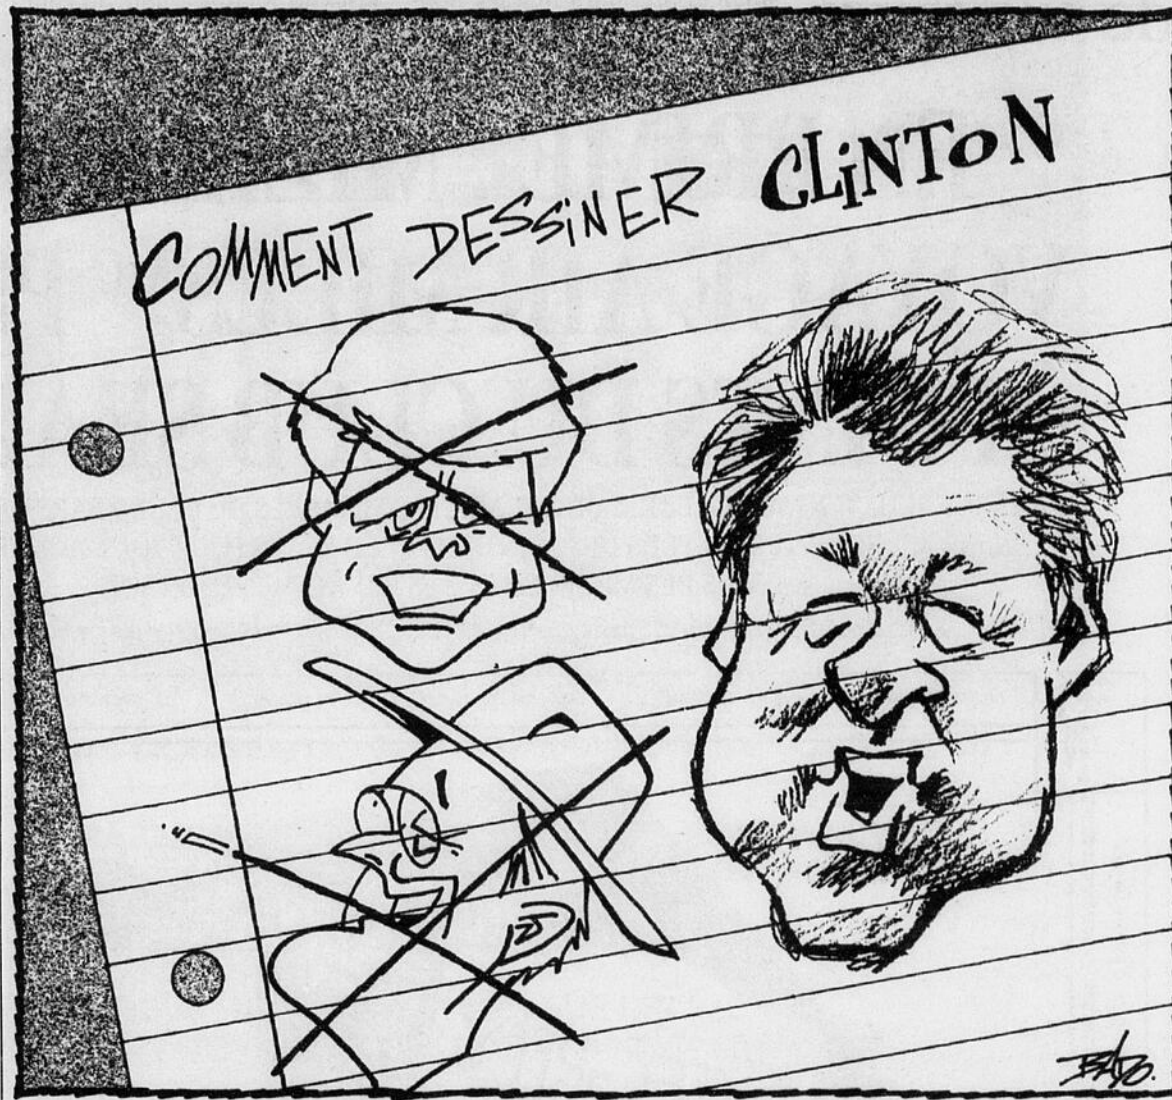 COMMENT DESSiNER CLiNTON
BADO.